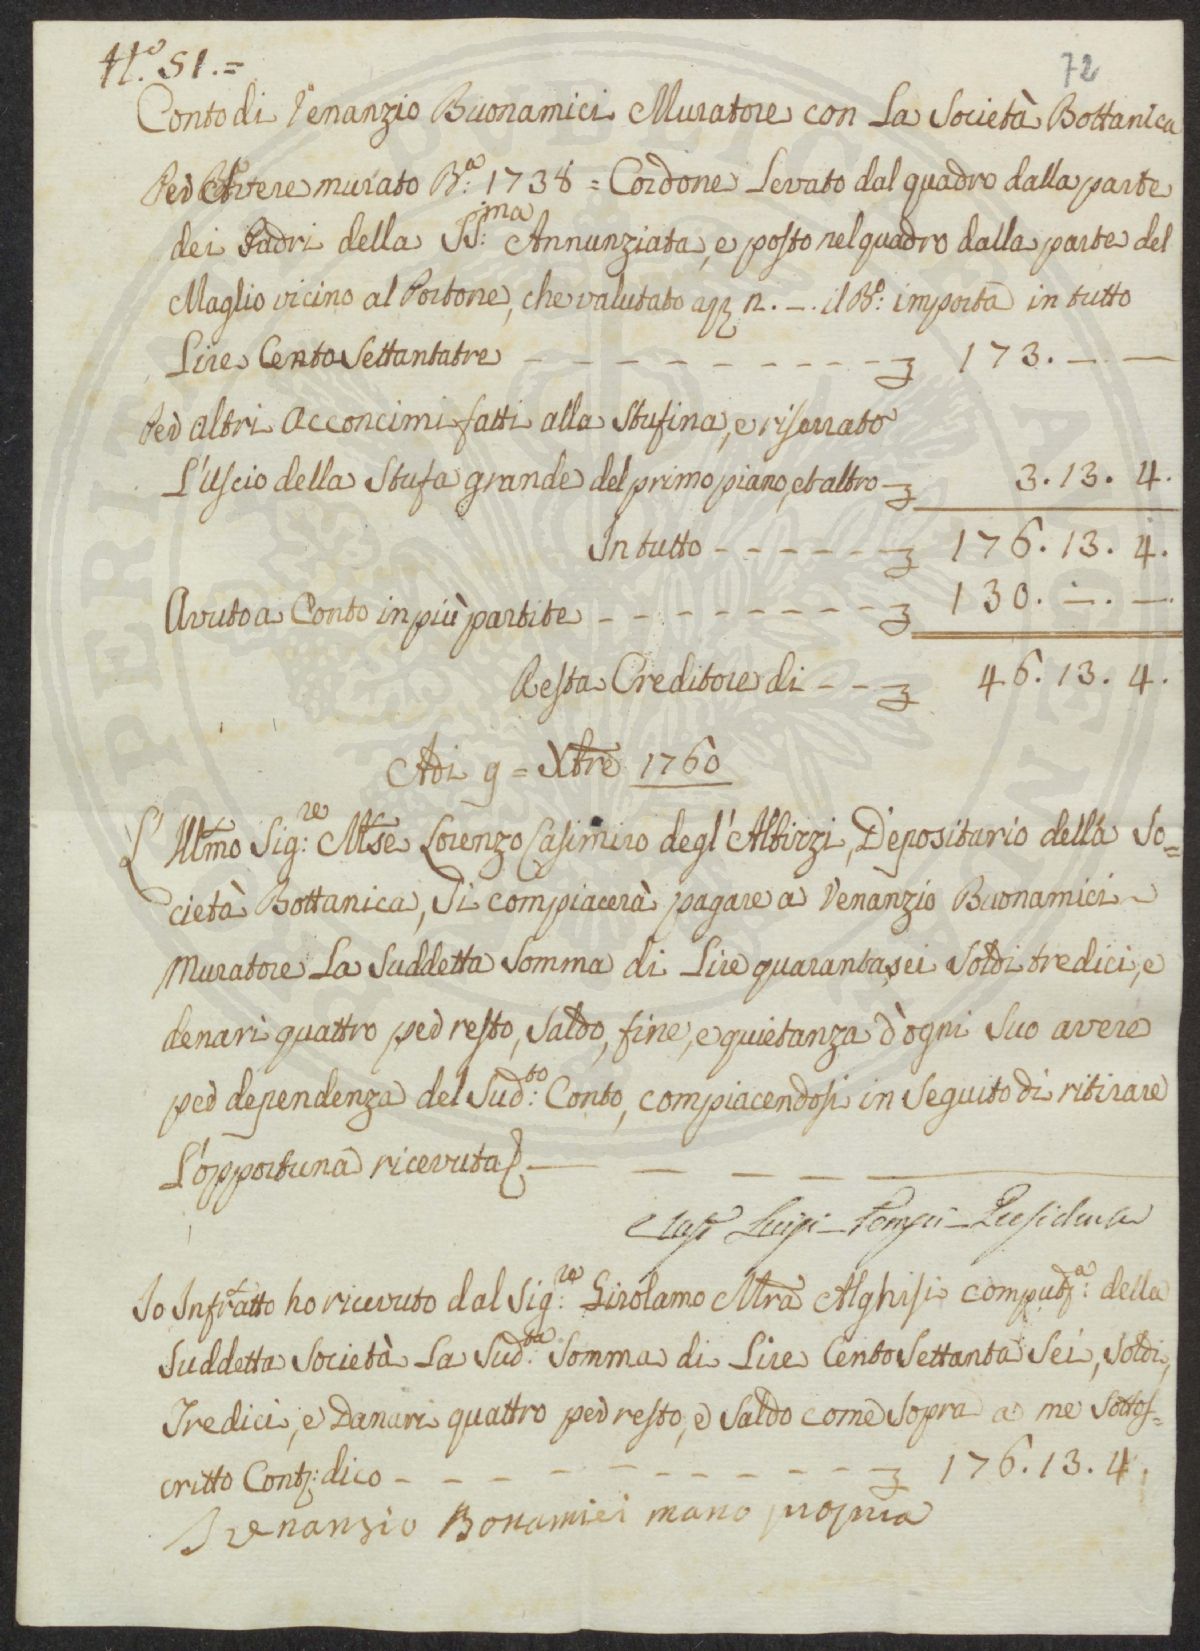 N.° 51.=
72
Conto di Venanzio Buonamici Muratore con La Società Bottanica
Per Avere murato B.ª 1738 = Cordone Levato dal quadro dalla parte
dei Padri della SS:ma Annunziata, e posto nel quadro dalla parte del
Maglio vicino al Portone, che valutato a 2. —. il B.º: importa in tutto
Lire Cento Settantatre — — — — — — — — 173. — —
Per altri Acconcimi fatti alla Stufina, e riserrato
L'Uscio della Stufa grande del primo piano, et altro 3. 13. 4.
In tutto — — — — — — 176. 13. 4.
Avuto a Conto in più partite — — — — — — — — 130. —. —.
Resta Creditore di — — 46. 13. 4.
Adi 9 = Xbre 1760
L'Illmo Sig:re Mse Lorenzo Casimiro degl'Albizzi, Depositario della So=
cietà Bottanica, Si compiacerà pagare a Venanzio Buonamici
Muratore La Suddetta Somma di Lire quaranta sei Soldi tredici, e
denari quattro per resto, Saldo, fine, e quietanza d'ogni Suo avere
per dependenza del Sud:to Conto, compiacendosi in Seguito di ritirare
L'opportuna ricevuta — — — —
Luigi Presidente
Io Infratto ho ricevuto dal Sig:re Girolamo Mra Alghisi comput:a della
Suddetta Società La Sud:ta Somma di Lire Cento Settanta Sei, Soldi,
Tredici, e Danari quattro per resto, e Saldo come Sopra a me Sottos=
critto Cont: dico — — — — — — — — — — 176. 13. 4.
Io Venanzio Bonamici mano propria